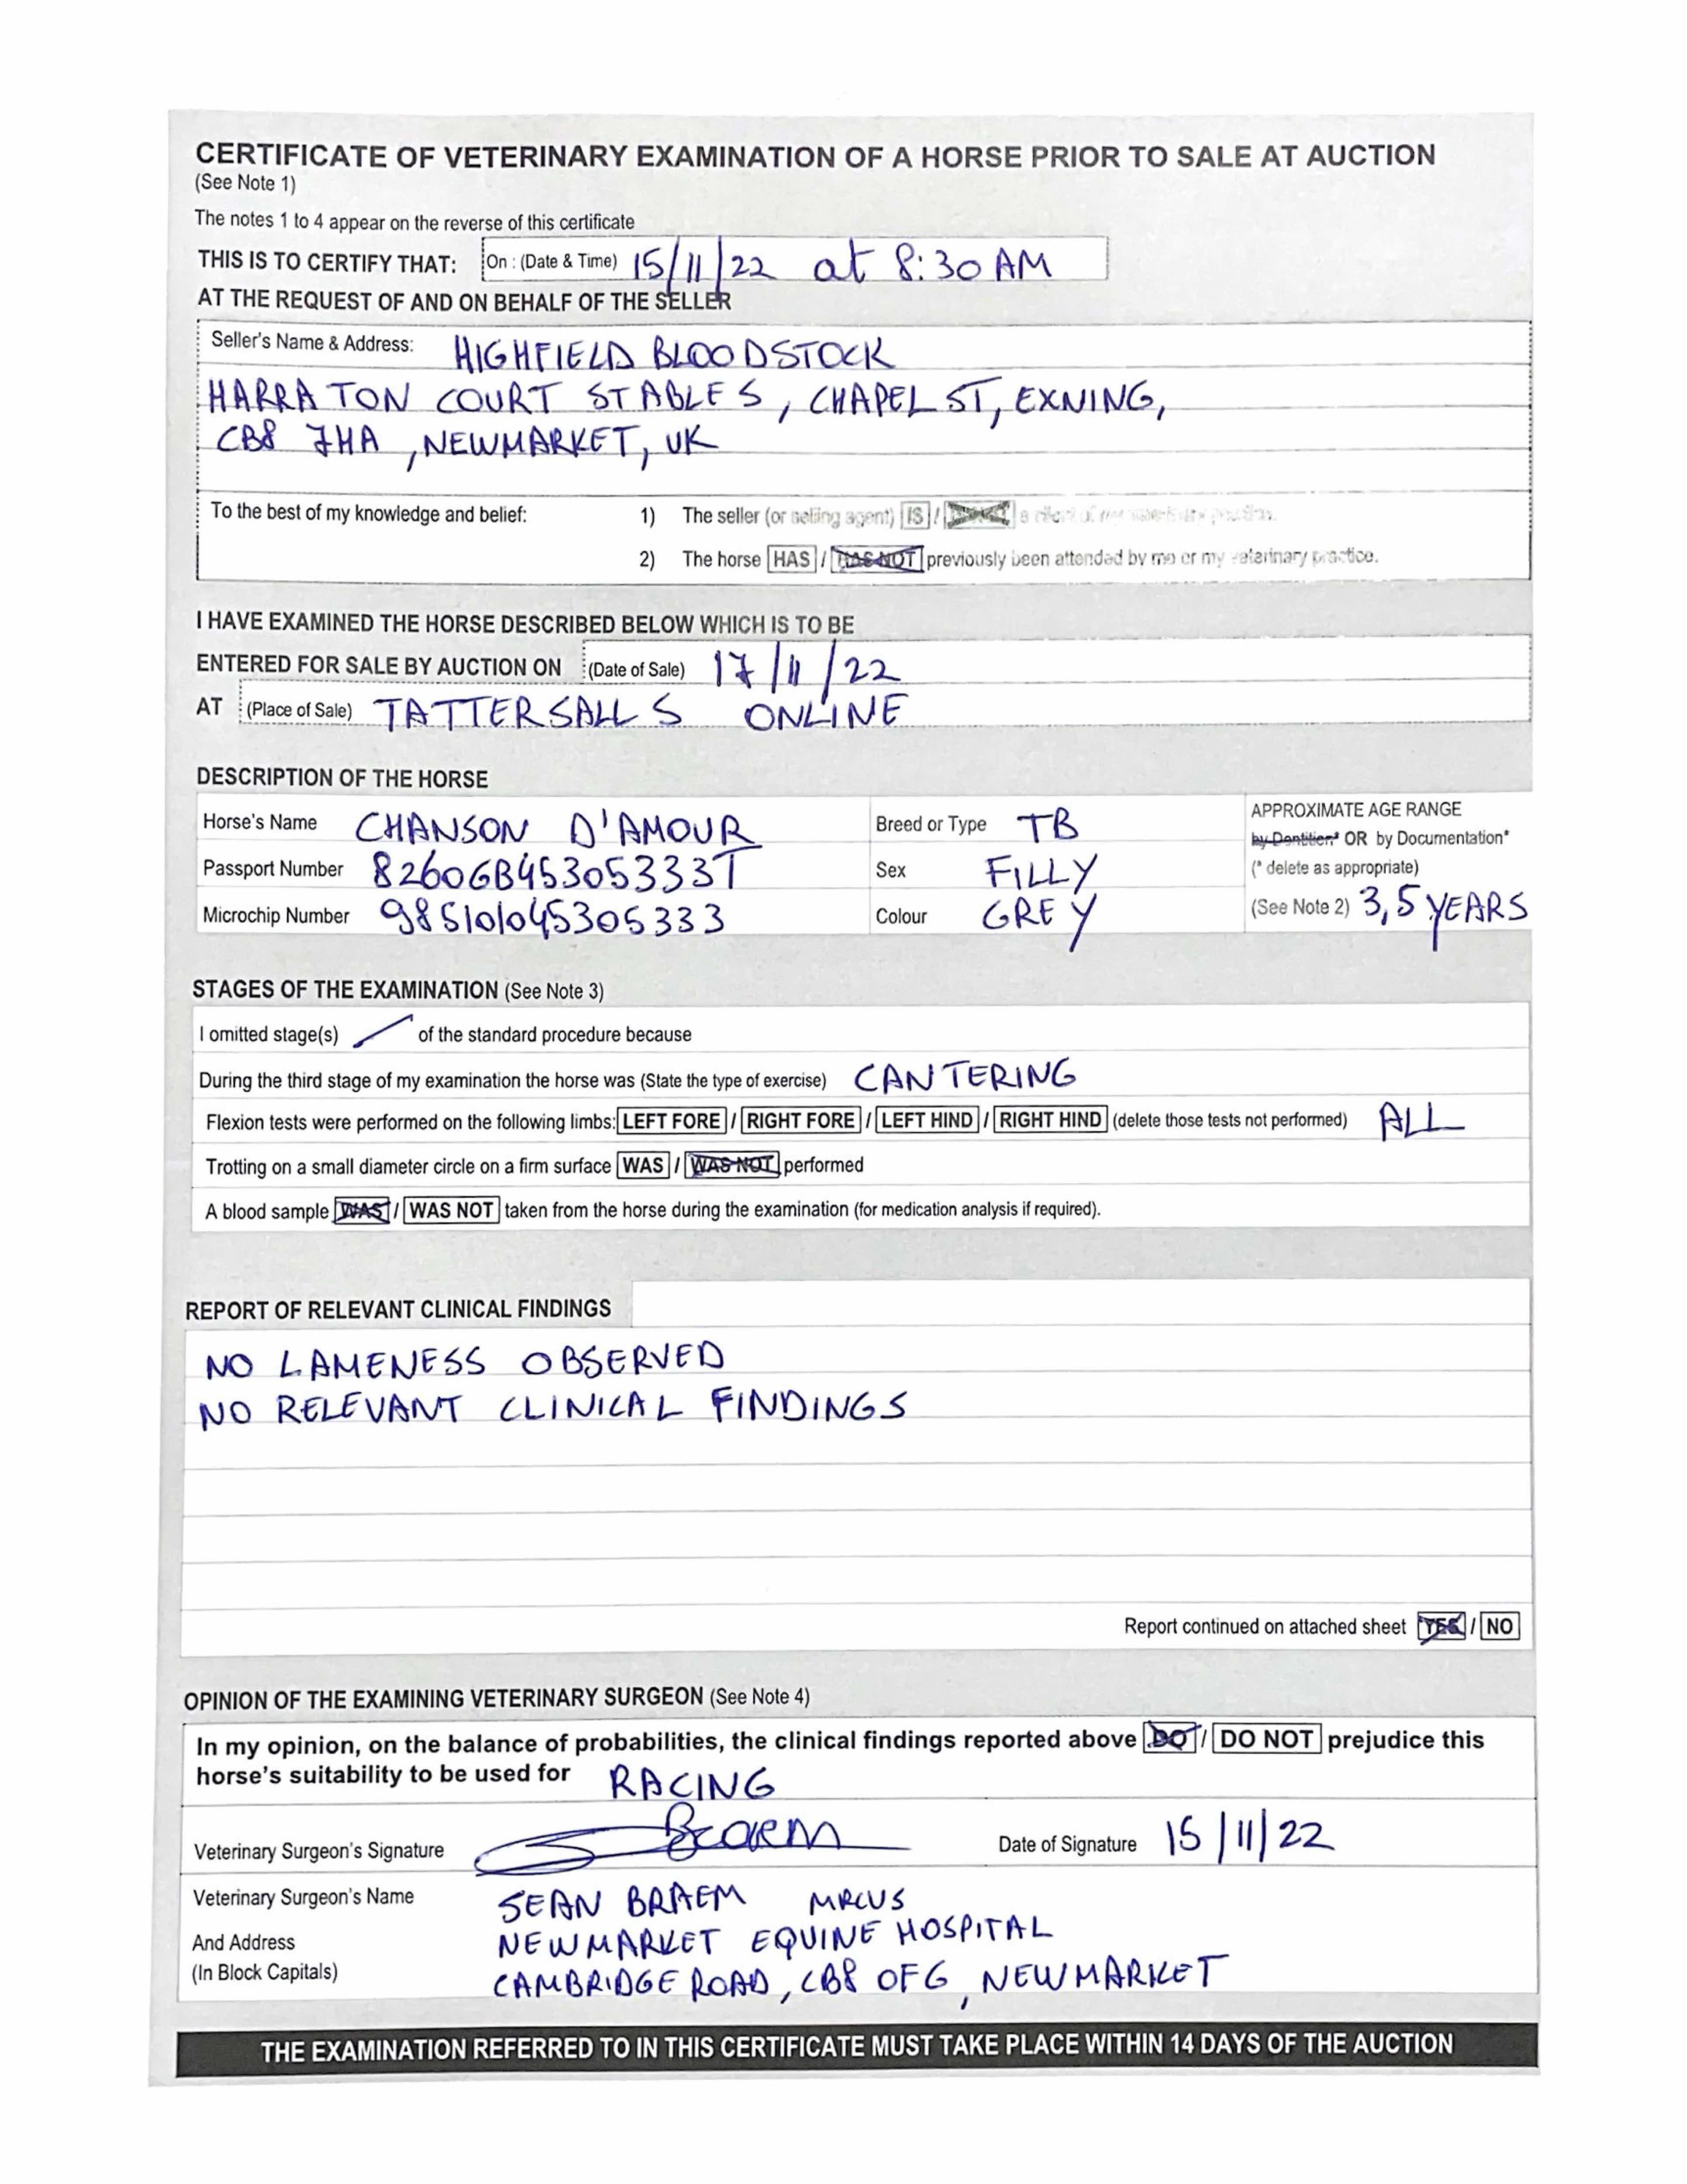 CERTIFICATE OF VETERINARY EXAMINATION OF A HORSE PRIOR TO SALE AT AUCTION
(See Note 1)
The notes 1 to 4 appear on the reverse of this certificate
THIS IS TO CERTIFY THAT: On : (Date & Time) 15/11/22 at 8:30 AM
AT THE REQUEST OF AND ON BEHALF OF THE SELLER
Seller's Name & Address: HIGHFIELD BLOODSTOCK
HARRATON COURT STABLES, CHAPEL ST, EXNING,
CB8 7HA, NEWMARKET, UK
To the best of my knowledge and belief: 1) The seller (or selling agent) IS / a client of my veterinary practice.
2) The horse HAS / HAS NOT previously been attended by me or my veterinary practice.
I HAVE EXAMINED THE HORSE DESCRIBED BELOW WHICH IS TO BE
ENTERED FOR SALE BY AUCTION ON (Date of Sale) 17/11/22
AT (Place of Sale) TATTERSALLS ONLINE
DESCRIPTION OF THE HORSE
Horse's Name CHANSON D'AMOUR Breed or Type TB APPROXIMATE AGE RANGE
by Dentition* OR by Documentation*
Passport Number 8260GB45305333T Sex FILLY (* delete as appropriate)
Microchip Number 985101045305333 Colour GREY (See Note 2) 3,5 YEARS
STAGES OF THE EXAMINATION (See Note 3)
I omitted stage(s) / of the standard procedure because
During the third stage of my examination the horse was (State the type of exercise) CANTERING
Flexion tests were performed on the following limbs: LEFT FORE / RIGHT FORE / LEFT HIND / RIGHT HIND (delete those tests not performed) ALL
Trotting on a small diameter circle on a firm surface WAS / WAS NOT performed
A blood sample WAS / WAS NOT taken from the horse during the examination (for medication analysis if required).
REPORT OF RELEVANT CLINICAL FINDINGS
NO LAMENESS OBSERVED
NO RELEVANT CLINICAL FINDINGS
Report continued on attached sheet YES / NO
OPINION OF THE EXAMINING VETERINARY SURGEON (See Note 4)
In my opinion, on the balance of probabilities, the clinical findings reported above DO / DO NOT prejudice this
horse's suitability to be used for RACING
Veterinary Surgeon's Signature Braem Date of Signature 15/11/22
Veterinary Surgeon's Name SEAN BRAEM MRCVS
And Address NEWMARKET EQUINE HOSPITAL
(In Block Capitals) CAMBRIDGE ROAD, CB8 0FG, NEWMARKET
THE EXAMINATION REFERRED TO IN THIS CERTIFICATE MUST TAKE PLACE WITHIN 14 DAYS OF THE AUCTION